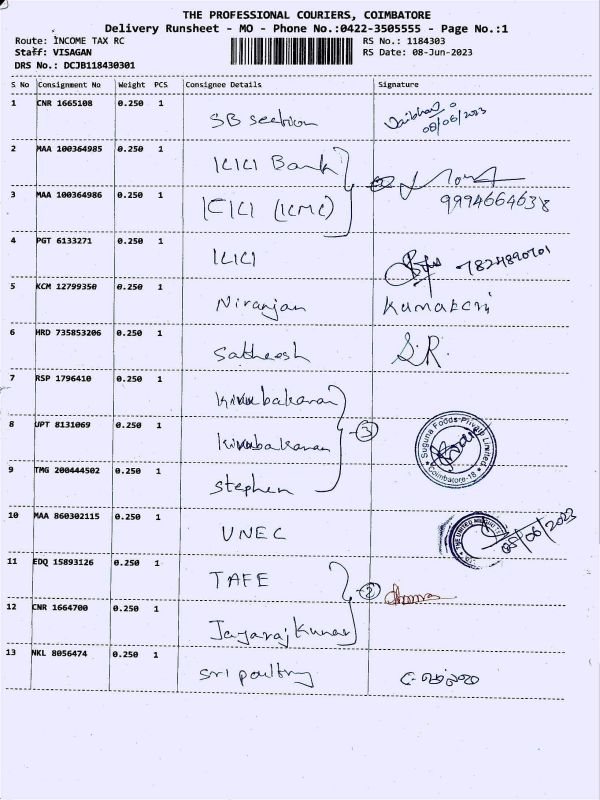 THE PROFESSIONAL COURIERS, COIMBATORE
Delivery Runsheet - MO - Phone No.:0422-3505555 - Page No.:1
Route: INCOME TAX RC
RS No.: 1184303
Staff: VISAGAN
RS Date: 08-Jun-2023
DRS No.: DCJB118430301
S No Consignment No Weight PCS Consignee Details Signature
1 CNR 1665108 0.250 1 SB section
08/06/2023
2 MAA 100364985 0.250 1 ICICI Bank
3 MAA 100364986 0.250 1 ICICI (ICMC) 9994664638
4 PGT 6133271 0.250 1 ICICI
5 KCM 12799350 0.250 1 Niranjan
6 HRD 735853206 0.250 1 Satheesh S.R.
7 RSP 1796410 0.250 1 Kirubakaran
8 JPT 8131069 0.250 1 Kirubakaran 3
Suguna Foods Private Limited
Coimbatore-18
9 TMG 200444502 0.250 1 Stephen
10 MAA 860302115 0.250 1 UNEC 08/06/2023
11 EDQ 15893126 0.250 1 TAFE 2
12 CNR 1664700 0.250 1 Jayaraj Kumar
13 NKL 8056474 0.250 1 Sri poultry